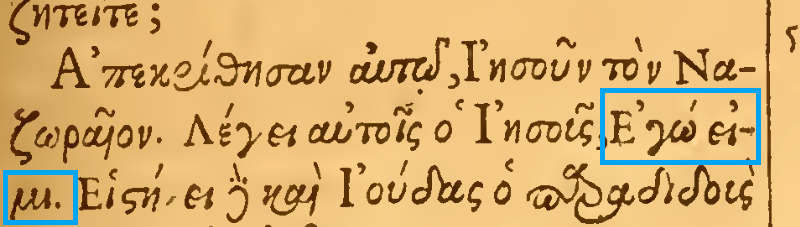 ζητεῖτε;
Ἀπεκρίθησαν αὐτῷ, Ἰησοῦν τὸν Να-
ζωραῖον. Λέγει αὐτοῖς ὁ Ἰησοῦς, Ἐγώ εἰ-
μι. Εἱστήκει δὲ καὶ Ἰούδας ὁ παραδιδοὺς